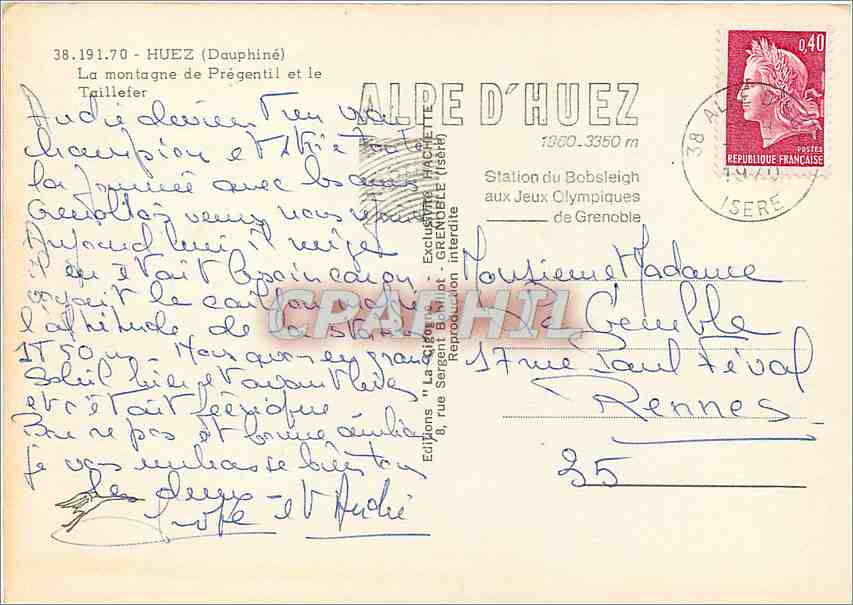 38.191.70 - HUEZ (Dauphiné)
La montagne de Prégentil et le
Taillefer
André devient un vrai
champion et skie toute
la journée avec les amis
Grenoblois venus nous
Aujourd'hui il neige
il en était besoin car on
voyait le caillou malgré
l'altitude de la station
1750 m - Nous avons eu grand
Soleil hier et avant hier
et c'était féérique
Bon repos et bonne
je vous embrasse bien tous
les deux -
et André
ALPE D'HUEZ
1860-3350 m
Station du Bobsleigh
aux Jeux Olympiques
de Grenoble
38 ALPE D'HUEZ
1970
ISERE
0,40
POSTES
REPUBLIQUE FRANÇAISE
Editions "La Cigogne" - Exclusivité HACHETTE
8, rue Sergent Bobillot - GRENOBLE (Isère)
Reproduction interdite
CPAPHIL
Monsieur Madame
17 rue Paul Féval
Rennes
35